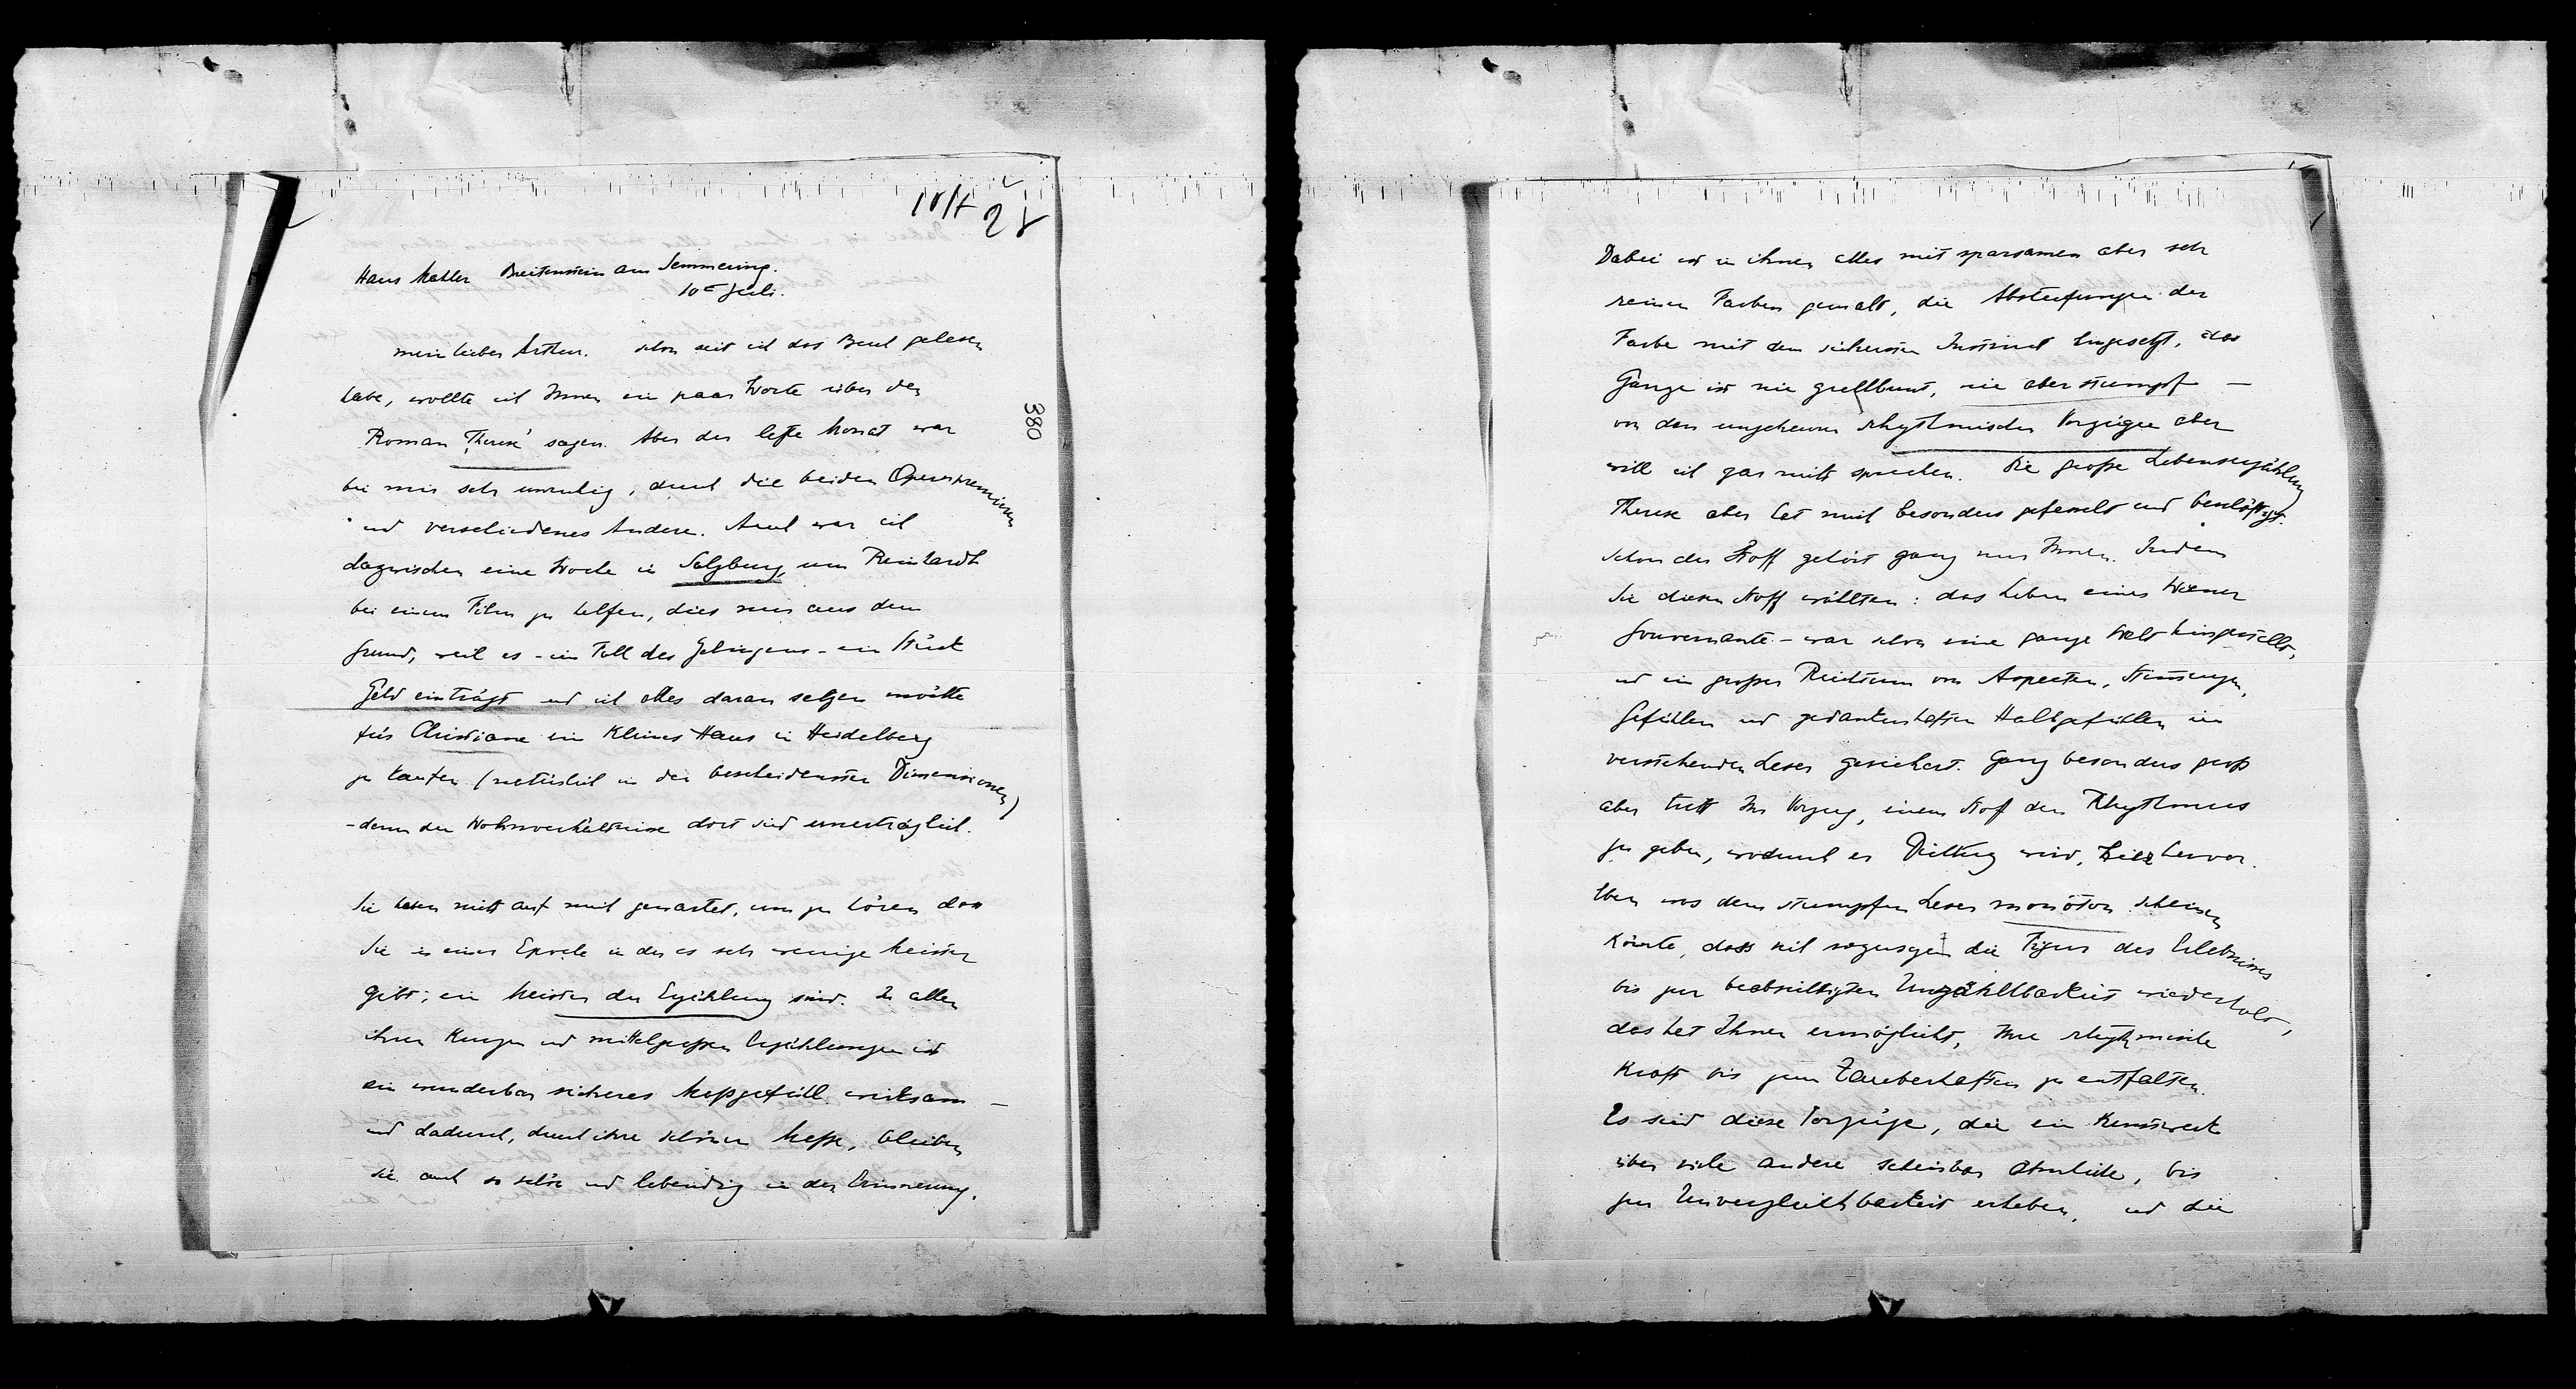 10/7 28
380
Haus Mahler Breitenstein am Semmering.
10e Juli.
mein lieber Arthur. schon seit ich das Buch gelesen
habe, wollte ich Ihnen ein paar Worte über den
Roman ‚Therese' sagen. Aber der letzte Monat war
bei mir sehr unruhig, durch die beiden Opernpremièren
und verschiedenes Andere. Auch war ich
dazwischen eine Woche in Salzburg, um Reinhardt
bei einem Film zu helfen, dies nur aus dem
Grund, weil es – im Fall des Gelingens – ein Stück
Geld einträgt und ich alles daran setzen möchte
für Christiane ein kleines Haus in Heidelberg
zu kaufen (natürlich in den bescheidensten Dimensionen)
– denn die Wohnverhältnisse dort sind unerträglich.
Sie haben nicht auf mich gewartet, um zu hören dass
Sie in einer Epoche in der es sehr wenige Meister
gibt, ein Meister der Erzählung sind. In allen
ihren kurzen und mittelgroßen Erzählungen ist
ein wunderbar sicheres Maßgefühl wirksam –
und dadurch, durch ihre schönen Maße, bleiben
sie auch so schön und lebendig in der Erinnerung.
Dabei ist in ihnen alles mit sparsamen aber sehr
reinen Farben gemalt, die Abstufungen der
Farbe mit dem sichersten Instinct hingesetzt, das
Ganze ist nie grellbunt, nie aber stumpf –
von den ungeheuren rhythmischen Vorzügen aber
will ich gar nicht sprechen. Die große Lebenserzählung
Therese aber hat mich besonders gefesselt und beschäftigt.
Schon der Stoff gehört ganz nur Ihnen. Indem
Sie diesen Stoff wählten: das Leben einer Wiener
Gouvernante – war schon eine ganze Welt hingestellt,
und ein großer Reichtum von Aspecten, Stimmungen,
Gefühlen und gedankenhaften Halbgefühlen im
verstehenden Leser gesichert. Ganz besonders groß
aber tritt Ihr Vorzug, einem Stoff den Rhythmus
zu geben, wodurch er Dichtung wird, hier hervor.
Eben was dem stumpfen Leser monoton scheinen
könnte, dass sich sozusagen die Figur des Erlebnisses
bis zur beabsichtigten Unzählbarkeit wiederholt,
das hat Ihnen ermöglicht, Ihre rhythmische
Kraft bis zum Zauberhaften zu entfalten.
Es sind diese Vorzüge, die ein Kunstwerk
über viele andere scheinbar ähnliche, bis
zur Unvergleichbarkeit erheben, und die